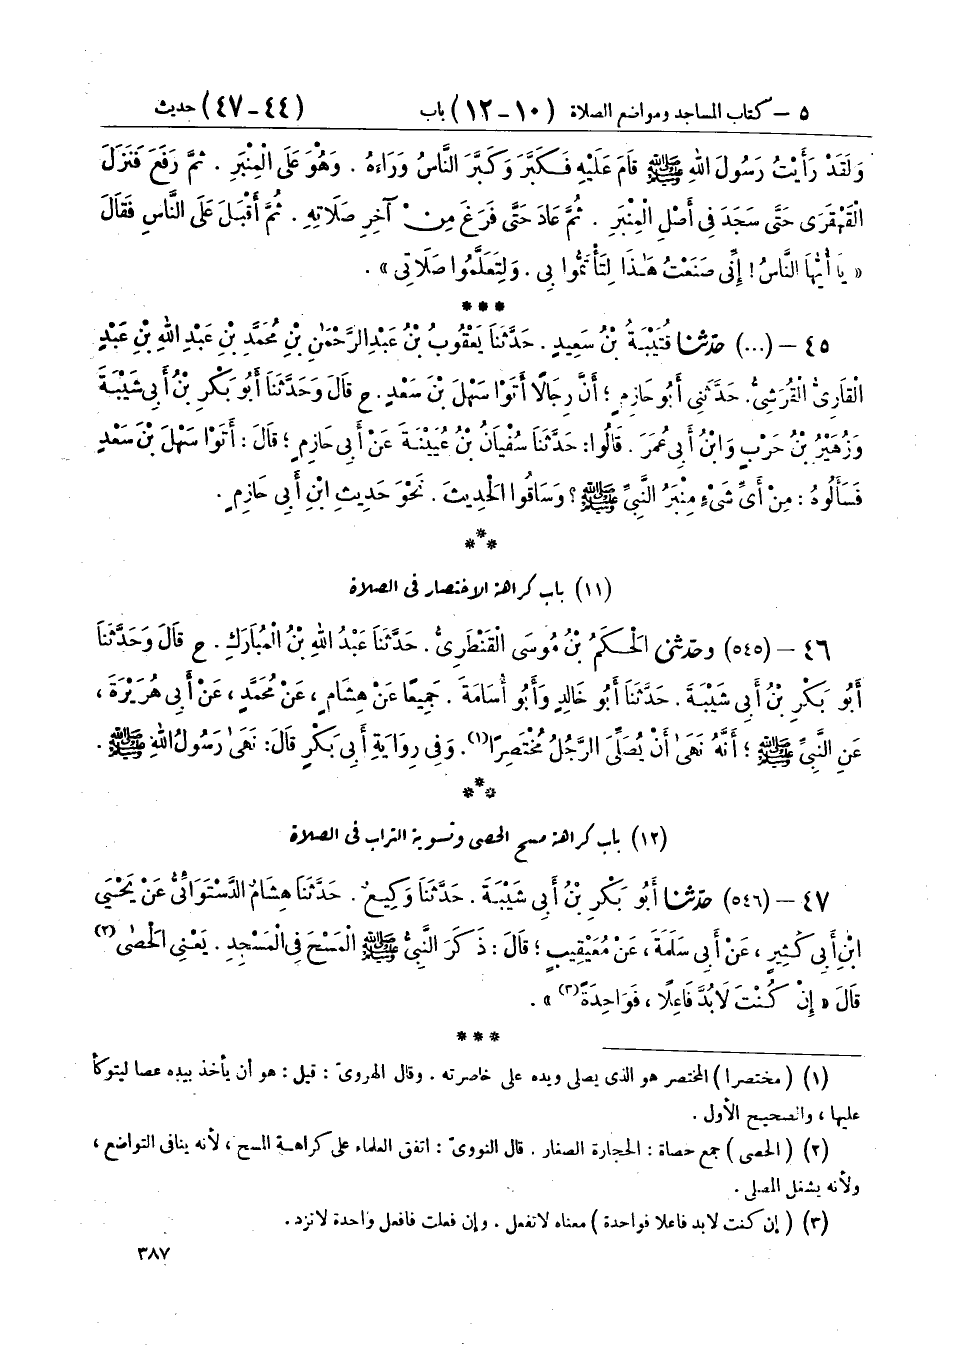 ٥ – كتاب المساجد ومواضع الصلاة (١٠ – ١٢) باب (٤٤ – ٤٧) حديث
وَلَقَدْ رَأَيْتُ رَسُولَ اللهِ ﷺ قَامَ عَلَيْهِ فَكَبَّرَ وَكَبَّرَ النَّاسُ وَرَاءَهُ . وَهُوَ عَلَى الْمِنْبَرِ . ثُمَّ رَفَعَ فَنَزَلَ
الْقَهْقَرَى حَتَّى سَجَدَ فِي أَصْلِ الْمِنْبَرِ . ثُمَّ عَادَ حَتَّى فَرَغَ مِنْ آخِرِ صَلَاتِهِ . ثُمَّ أَقْبَلَ عَلَى النَّاسِ فَقَالَ
« يَا أَيُّهَا النَّاسُ ! إِنِّي صَنَعْتُ هَذَا لِتَأْتَمُّوا بِي . وَلِتَعَلَّمُوا صَلَاتِي » .
* * *
٤٥ – (...) حَدَّثَنَا قُتَيْبَةُ بْنُ سَعِيدٍ . حَدَّثَنَا يَعْقُوبُ بْنُ عَبْدِ الرَّحْمَنِ بْنِ مُحَمَّدِ بْنِ عَبْدِ اللهِ بْنِ عَبْدٍ
الْقَارِيُّ الْقُرَشِيُّ . حَدَّثَنِي أَبُو حَازِمٍ ؛ أَنَّ رِجَالًا أَتَوْا سَهْلَ بْنَ سَعْدٍ . ح قَالَ وَحَدَّثَنَا أَبُو بَكْرِ بْنُ أَبِي شَيْبَةَ
وَزُهَيْرُ بْنُ حَرْبٍ وَابْنُ أَبِي عُمَرَ . قَالُوا : حَدَّثَنَا سُفْيَانُ بْنُ عُيَيْنَةَ عَنْ أَبِي حَازِمٍ ؛ قَالَ : أَتَوْا سَهْلَ بْنَ سَعْدٍ
فَسَأَلُوهُ : مِنْ أَيِّ شَيْءٍ مِنْبَرُ النَّبِيِّ ﷺ ؟ وَسَاقُوا الْحَدِيثَ . نَحْوَ حَدِيثِ ابْنِ أَبِي حَازِمٍ .
* * *
(١١) باب كراهة الاختصار في الصلاة
٤٦ – (٥٤٥) وحَدَّثَنِي الْحَكَمُ بْنُ مُوسَى الْقَنْطَرِيُّ . حَدَّثَنَا عَبْدُ اللهِ بْنُ الْمُبَارَكِ . ح قَالَ وَحَدَّثَنَا
أَبُو بَكْرِ بْنُ أَبِي شَيْبَةَ . حَدَّثَنَا أَبُو خَالِدٍ وَأَبُو أُسَامَةَ . جَمِيعًا عَنْ هِشَامٍ ، عَنْ مُحَمَّدٍ ، عَنْ أَبِي هُرَيْرَةَ ،
عَنِ النَّبِيِّ ﷺ ؛ أَنَّهُ نَهَى أَنْ يُصَلِّيَ الرَّجُلُ مُخْتَصِرًا(١) . وَفِي رِوَايَةِ أَبِي بَكْرٍ قَالَ : نَهَى رَسُولُ اللهِ ﷺ .
* * *
(١٢) باب كراهة مسح الحصى وتسوية التراب في الصلاة
٤٧ – (٥٤٦) حَدَّثَنَا أَبُو بَكْرِ بْنُ أَبِي شَيْبَةَ . حَدَّثَنَا وَكِيعٌ . حَدَّثَنَا هِشَامٌ الدَّسْتَوَائِيُّ عَنْ يَحْيَى
ابْنِ أَبِي كَثِيرٍ ، عَنْ أَبِي سَلَمَةَ ، عَنْ مُعَيْقِيبٍ ؛ قَالَ : ذَكَرَ النَّبِيُّ ﷺ الْمَسْحَ فِي الْمَسْجِدِ . يَعْنِي الْحَصَى(٢)
قَالَ « إِنْ كُنْتَ لَا بُدَّ فَاعِلًا ، فَوَاحِدَةً(٣) » .
* * *
(١) ( مختصرا ) المختصر هو الذى يصلى ويده على خاصرته . وقال الهروىّ : قيل : هو أن يأخذ بيده عصا ليتوكأ
عليها ، والصحيح الأول .
(٢) ( الحصى ) جمع حصاة : الحجارة الصغار . قال النووىّ : اتفق العلماء على كراهة المسح ، لأنه ينافى التواضع ،
ولأنه يشغل المصلى .
(٣) ( إن كنت لابد فاعلا فواحدة ) معناه لا تفعل . وإن فعلت فافعل واحدة لا تزد .
٣٨٧